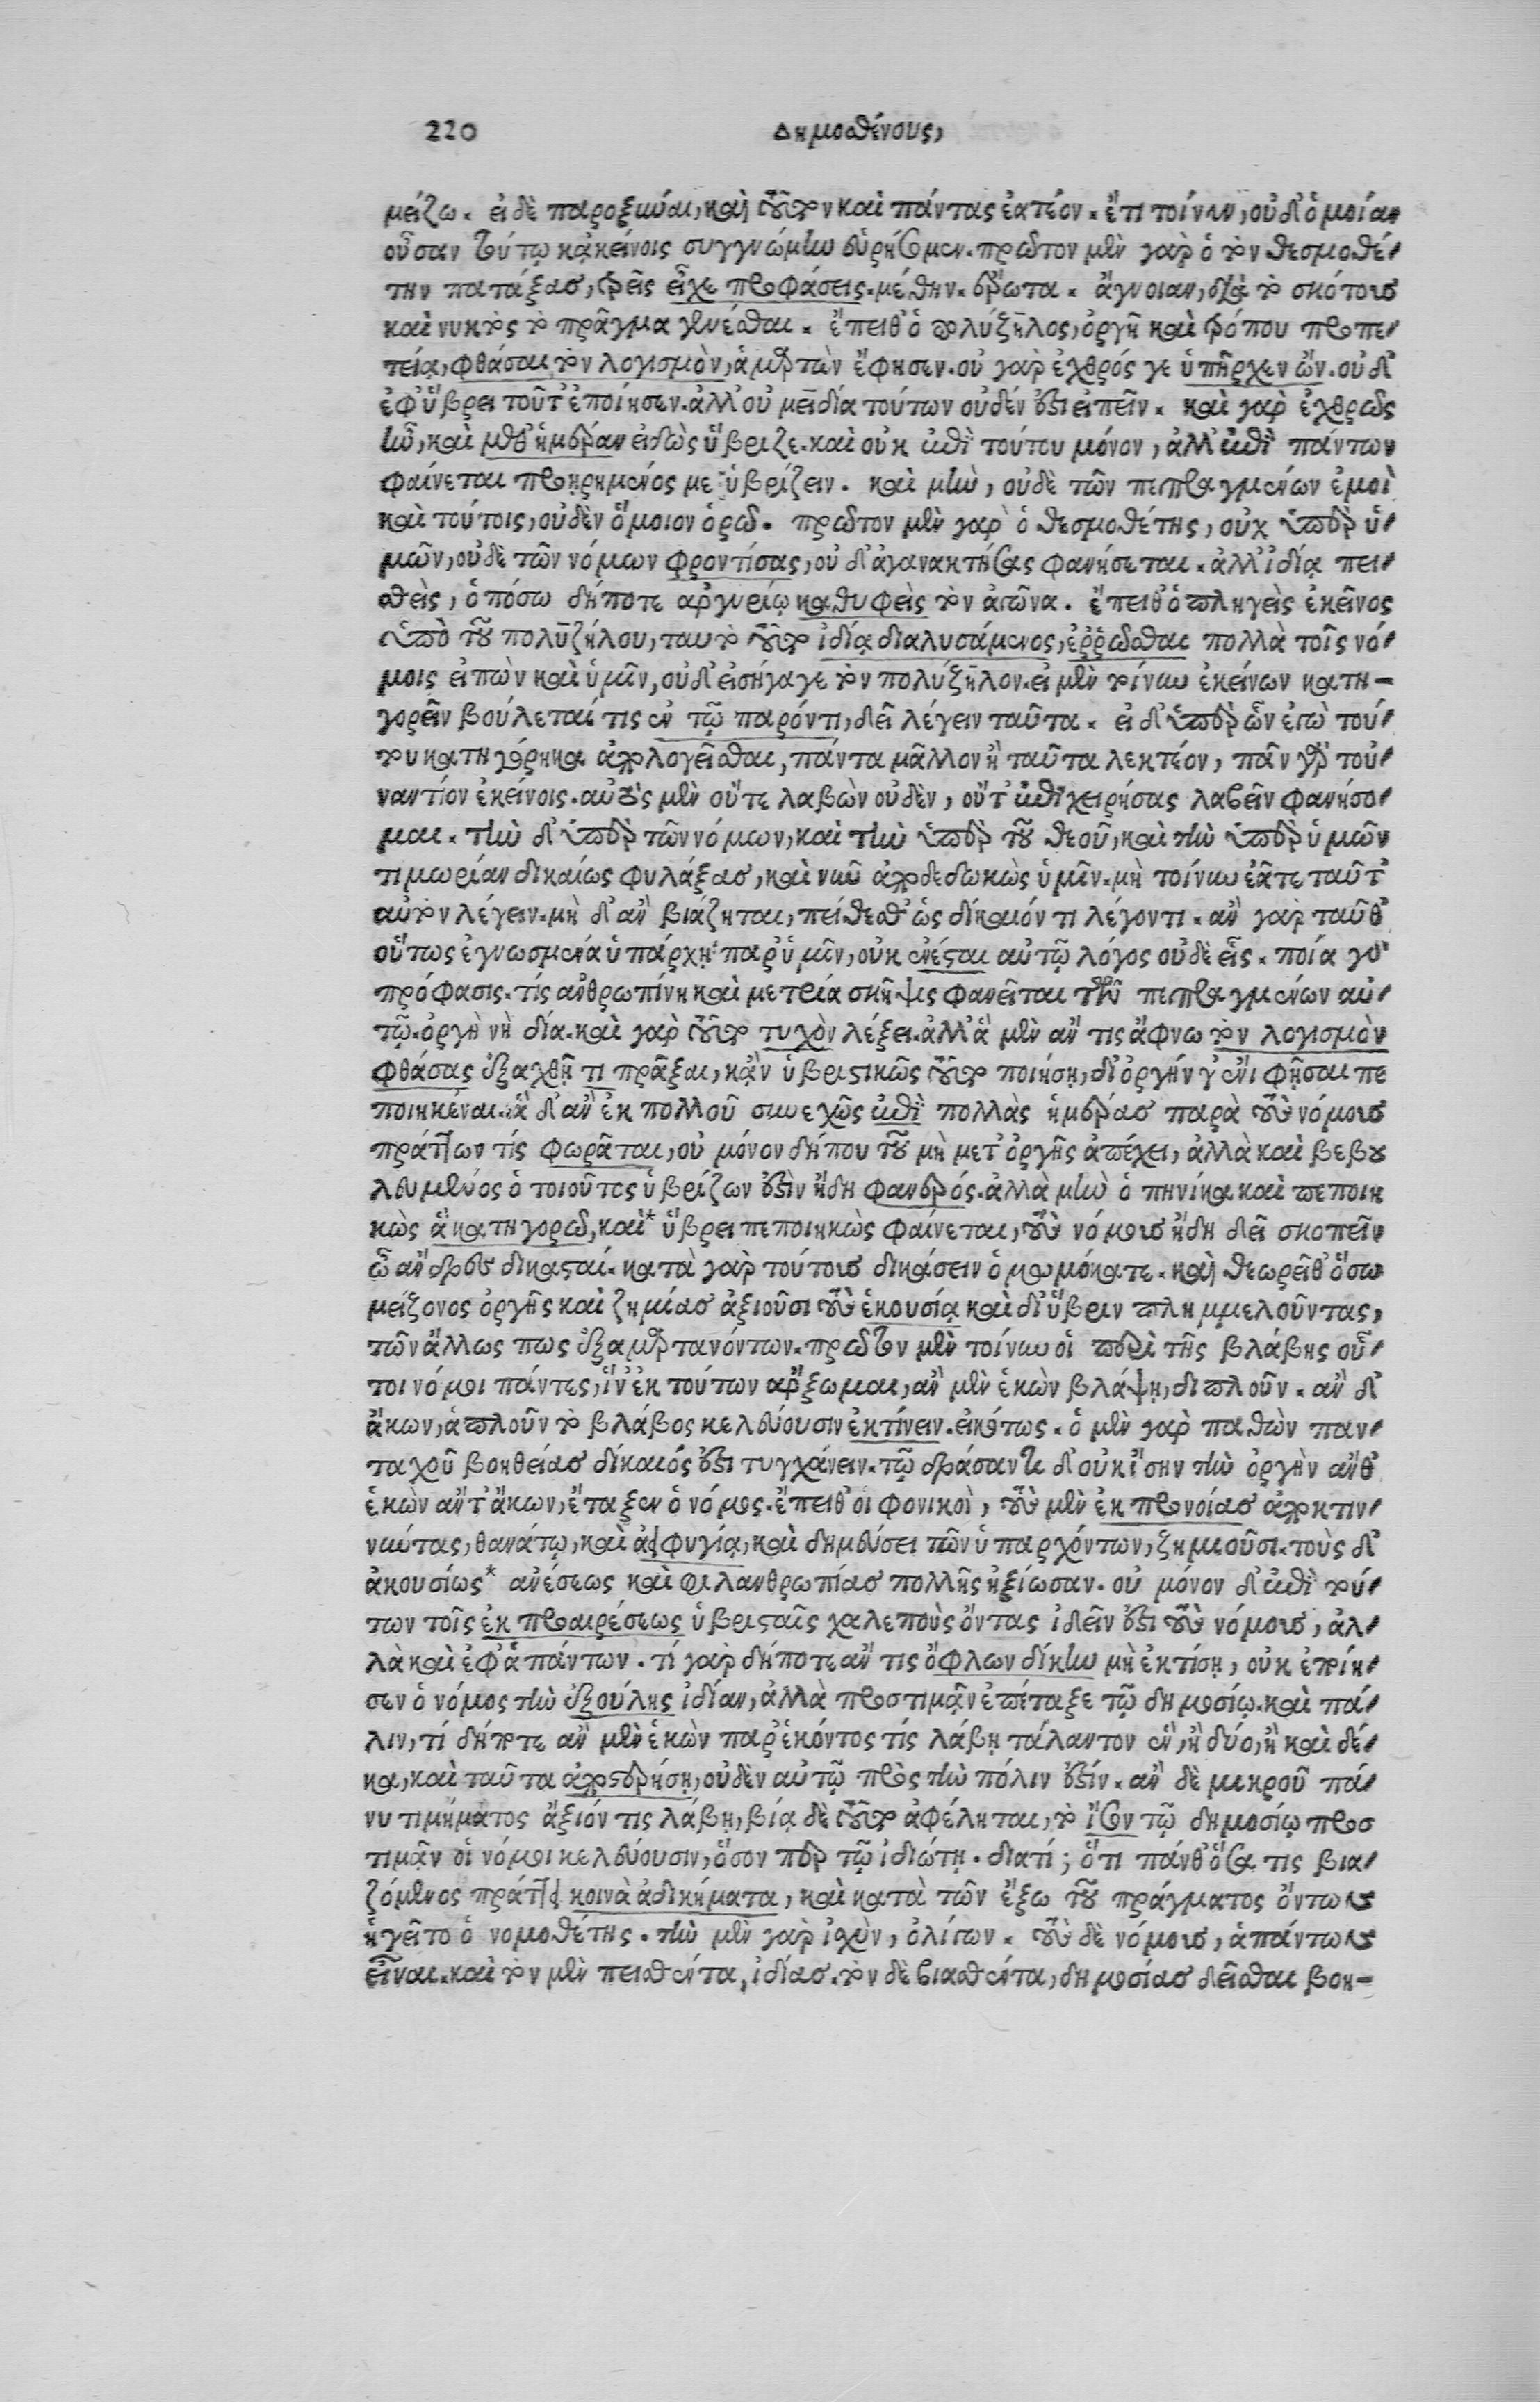 220 Δημοσθένους,
μείζω. εἰ δὲ παροξυνῶαι, καὶ τοῦτον καὶ πάντας ἐατέον. ἔτι τοίνυν, οὐδ' ὁμοίαν
οὖσαν τούτῳ κἀκείνοις συγγνώμην εὑρήσομεν. πρῶτον μὲν γὰρ ὁ τὸν θεσμοθέ-
την πατάξας, τρεῖς εἶχε προφάσεις. μέθην. ἔρωτα. ἄγνοιαν, διὰ τὸ σκότους
καὶ νυκτὸς τὸ πρᾶγμα γενέσθαι. ἔπειθ' ὁ πολύζηλος, ὀργῇ καὶ τρόπου προπε-
τείᾳ, φθάσαι τὸν λογισμὸν, ἁμαρτὼν ἔφησεν. οὐ γὰρ ἐχθρός γε ὑπῆρχεν ὤν. οὐδ'
ἐφ' ὕβρει τοῦτ' ἐποίησεν. ἀλλ' οὐ μειδία τούτων οὐδέν ἐστι εἰπεῖν. καὶ γὰρ ἐχθρὸς
ἦν, καὶ μεθ' ἡμέραν εἰδὼς ὕβριζε. καὶ οὐκ ἐπὶ τούτου μόνον, ἀλλ' ἐπὶ πάντων
φαίνεται προῃρημένος με ὑβρίζειν. καὶ μὴν, οὐδὲ τῶν πεπραγμένων ἐμοὶ
καὶ τούτοις, οὐδὲν ὅμοιον ὁρῶ. πρῶτον μὲν γὰρ ὁ θεσμοθέτης, οὐχ ὑπὲρ ὑ-
μῶν, οὐδὲ τῶν νόμων φροντίσας, οὐδ' ἀγανακτήσας φανήσεται. ἀλλ' ἰδίᾳ πει-
σθεὶς, ὁπόσω δήποτε ἀργυρίῳ καθυφεὶς τὸν ἀγῶνα. ἔπειθ' ὁ πληγεὶς ἐκεῖνος
ὑπὸ τοῦ πολυζήλου, ταυτὸ τοῦτο ἰδίᾳ διαλυσάμενος, ἐρρῶσθαι πολλὰ τοῖς νό-
μοις εἰπὼν καὶ ὑμῖν, οὐδ' εἰσήγαγε τὸν πολύζηλον. εἰ μὲν τοίνυν ἐκείνων κατη-
γορεῖν βούλεταί τις ἐν τῷ παρόντι, δεῖ λέγειν ταῦτα. εἰ δ' ὑπὲρ ὧν ἐγὼ τού-
του κατηγόρηκα ἀπολογεῖσθαι, πάντα μᾶλλον ἢ ταῦτα λεκτέον, πᾶν γὰρ τοὐ-
ναντίον ἐκείνοις. αὐτὸς μὲν οὔτε λαβὼν οὐδὲν, οὔτ' ἐπιχειρήσας λαβεῖν φανήσο-
μαι. τὴν δ' ὑπὲρ τῶν νόμων, καὶ τὴν ὑπὲρ τοῦ θεοῦ, καὶ τὴν ὑπὲρ ὑμῶν
τιμωρίαν δικαίως φυλάξας, καὶ νῦν ἀποδεδωκὼς ὑμῖν. μὴ τοίνυν ἐᾶτε ταῦτ'
αὐτὸν λέγειν. μὴ δ' ἂν βιάζηται, πείθεσθ' ὡς δίκαιόν τι λέγοντι. ἂν γὰρ ταῦθ'
οὕτως ἐγνωσμένα ὑπάρχῃ παρ' ὑμῖν, οὐκ ἐνέσται αὐτῷ λόγος οὐδὲ εἷς. ποία γὰρ
πρόφασις. τίς ἀνθρωπίνη καὶ μετρία σκῆψις φανεῖται τῶν πεπραγμένων αὐ-
τῷ. ὀργὴ νὴ δία. καὶ γὰρ τοῦτο τυχὸν λέξει. ἀλλ' ἃ μὲν ἄν τις ἄφνω τὸν λογισμὸν
φθάσας ἐξαχθῇ τι πρᾶξαι, κἂν ὑβριστικῶς τοῦτο ποιήσῃ, δι' ὀργήν γ' ἔνι φῆσαι πε
ποιηκέναι. ἃ δ' ἂν ἐκ πολλοῦ συνεχῶς ἐπὶ πολλὰς ἡμέρας παρὰ τοὺς νόμους
πράττων τίς φωρᾶται, οὐ μόνον δήπου τοῦ μὴ μετ' ὀργῆς ἀπέχει, ἀλλὰ καὶ βεβου
λευμένος ὁ τοιοῦτος ὑβρίζων ἐστὶν ἤδη φανερός. ἀλλὰ μὴν ὁπηνίκα καὶ πεποιη
κὼς ἃ κατηγορῶ, καὶ* ὕβρει πεποιηκὼς φαίνεται, τοὺς νόμους ἤδη δεῖ σκοπεῖν
ὦ ἄνδρες δικασταί. κατὰ γὰρ τούτους δικάσειν ὀμωμόκατε. καὶ θεωρεῖθ' ὅσω
μείζονος ὀργῆς καὶ ζημίας ἀξιοῦσι τοὺς ἑκουσίᾳ καὶ δι' ὕβριν πλημμελοῦντας,
τῶν ἄλλως πως ἐξαμαρτανόντων. πρῶτον μὲν τοίνυν οἱ περὶ τῆς βλάβης οὗ-
τοι νόμοι πάντες, ἵν' ἐκ τούτων ἄρξωμαι, ἂν μὲν ἑκὼν βλάψῃ, διπλοῦν. ἂν δ'
ἄκων, ἁπλοῦν τὸ βλάβος κελεύουσιν ἐκτίνειν. εἰκότως. ὁ μὲν γὰρ παθὼν παν-
ταχοῦ βοηθείας δίκαιός ἐστι τυγχάνειν. τῷ δράσαντι δ' οὐκ ἴσην τὴν ὀργὴν ἄνθ'
ἑκὼν ἄντ' ἄκων, ἔταξεν ὁ νόμος. ἔπειθ' οἱ φονικοὶ, τοὺς μὲν ἐκ προνοίας ἀποκτιν-
νύντας, θανάτῳ, καὶ ἀειφυγίᾳ, καὶ δημεύσει τῶν ὑπαρχόντων, ζημιοῦσι. τοὺς δ'
ἀκουσίως* αἰδέσεως καὶ φιλανθρωπίας πολλῆς ἠξίωσαν. οὐ μόνον δ' ἐπὶ τού-
των τοῖς ἐκ προαιρέσεως ὑβρισταῖς χαλεποὺς ὄντας ἰδεῖν ἐστι τοὺς νόμους, ἀλ-
λὰ καὶ ἐφ' ἁπάντων. τί γὰρ δήποτε ἄν τις ὄφλων δίκην μὴ ἐκτίσῃ, οὐκ ἐποίη-
σεν ὁ νόμος τὴν ἐξούλης ἰδίαν, ἀλλὰ προστιμᾷν ἐπέταξε τῷ δημοσίῳ. καὶ πά-
λιν, τί δήποτε ἂν μὲν ἑκὼν παρ' ἑκόντος τίς λάβῃ τάλαντον ἓν, ἢ δύο, ἢ καὶ δέ-
κα, καὶ ταῦτα ἀποστερήσῃ, οὐδὲν αὐτῷ πρὸς τὴν πόλιν ἐστίν. ἂν δὲ μικροῦ πά-
νυ τιμήματος ἄξιόν τις λάβῃ, βίᾳ δὲ τοῦτο ἀφέληται, τὸ ἴσον τῷ δημοσίῳ προσ
τιμᾷν οἱ νόμοι κελεύουσιν, ὅσον περ τῷ ἰδιώτῃ. διατί; ὅτι πάνθ' ὅσα τις βια-
ζόμενος πράττει κοινὰ ἀδικήματα, καὶ κατὰ τῶν ἔξω τοῦ πράγματος ὄντων
ἡγεῖτο ὁ νομοθέτης. τὴν μὲν γὰρ ἰσχὺν, ὀλίγων. τοὺς δὲ νόμους, ἁπάντων
εἶναι. καὶ τὸν μὲν πεισθέντα, ἰδίας. τὸν δὲ βιασθέντα, δημοσίας δεῖσθαι βοη-